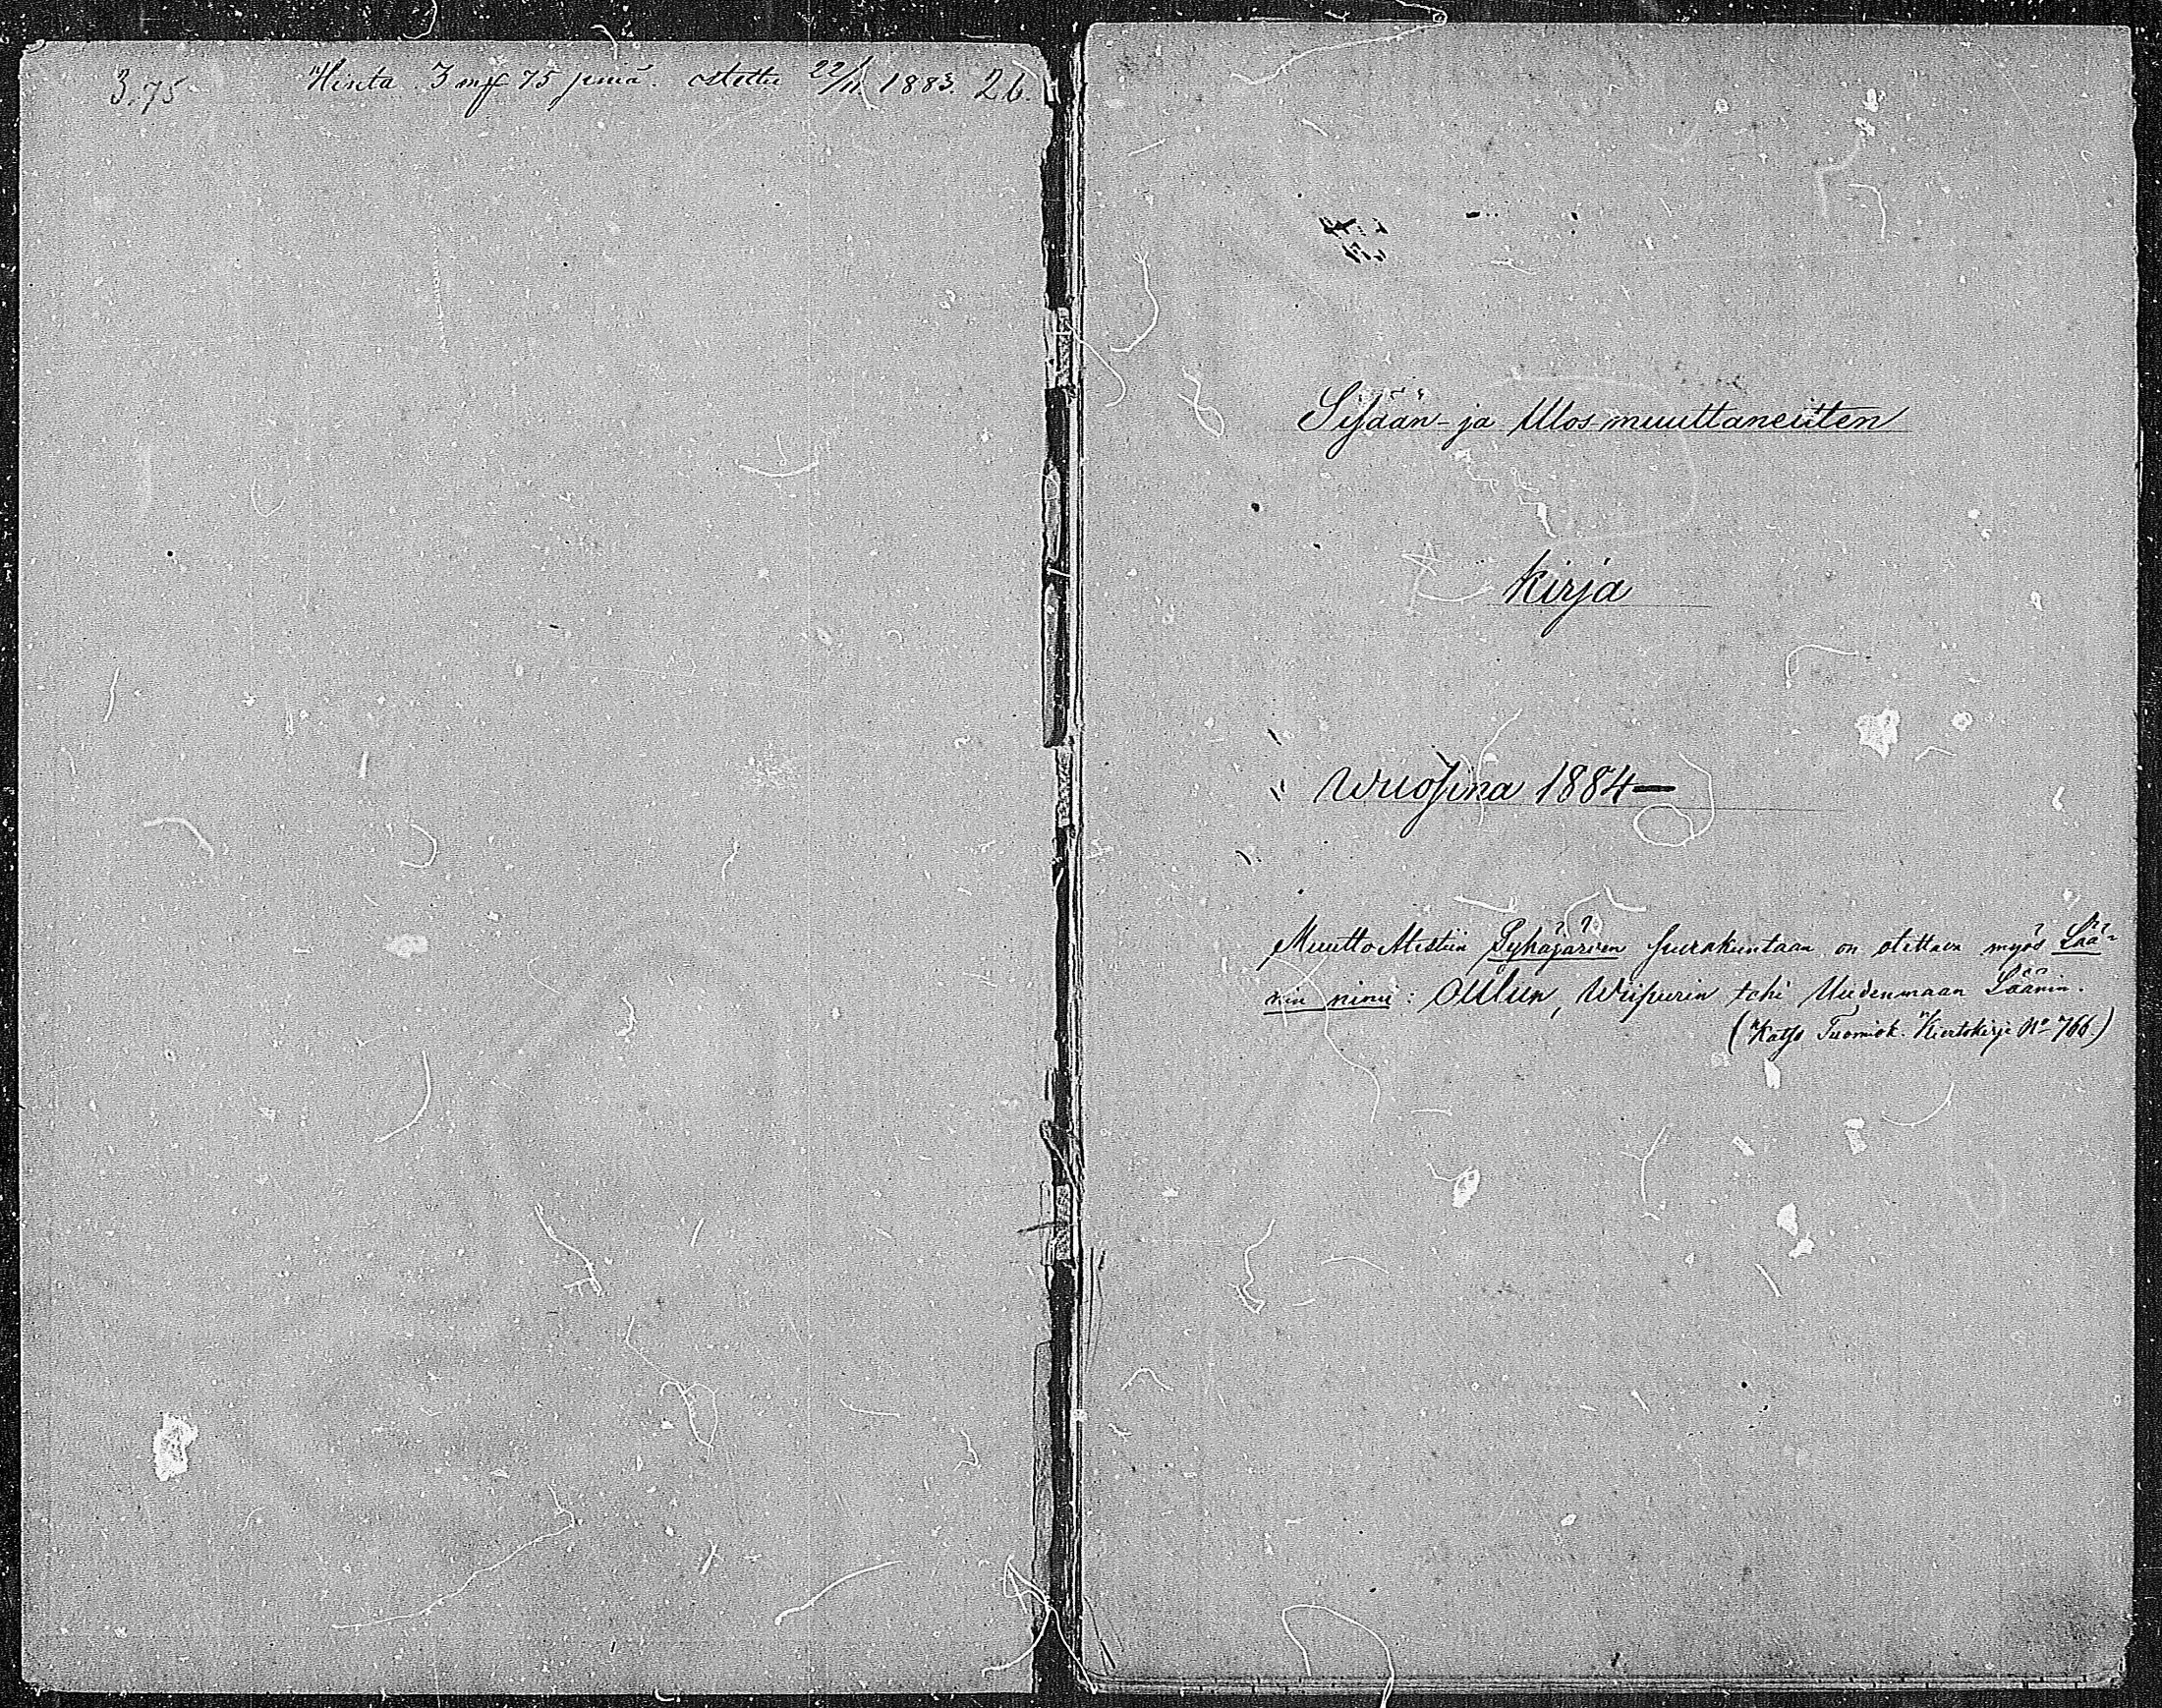 3,75 Hinta 3 mk 75 peniä. ostettu 22/11 1883. 26.
Sisään- ja Ulosmuuttaneitten
kirja
Wuosina 1884—
Muutto Atestiin Pyhäjärven seurakuntaan on otettava myös Lää-
nin nimi: Oulun, Wiipurin tahi Uudenmaan Läänin.
(Katso Tuomiok. Kiertokirje No 766.)